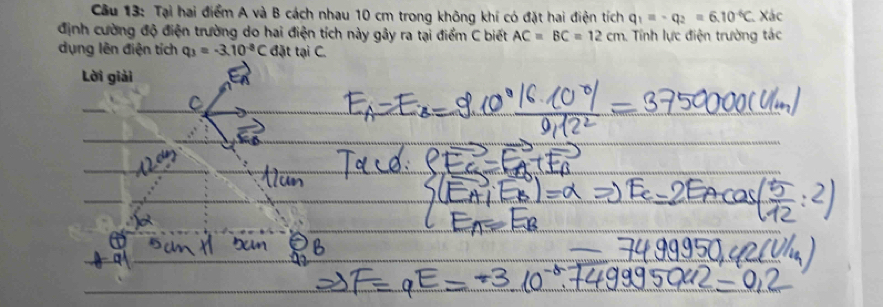 Câu 13: Tại hai điểm A và B cách nhau 10 cm trong không khí có đặt hai điện tích q₁ = - q₂ = 6.10⁻⁶C. Xác
định cường độ điện trường do hai điện tích này gây ra tại điểm C biết AC = BC = 12 cm. Tính lực điện trường tác
dụng lên điện tích q₃ = -3.10⁻⁸ C đặt tại C.
Lời giải
E_A
C
E_B
12cm
12cm
α
5cm H 5cm
⊕ A q1
⊖ B q2
E_A = E_B = 9.10⁹ |6.10⁻⁶| / 0,12² = 3750000 (V/m)
Ta có: { E_C = E_A + E_B
(E_A; E_B) = α => E_C = 2E_A cos(5/12 : 2)
E_A = E_B
= 7499950,42 (V/m)
=> F = qE = -3.10⁻⁸.7499950,42 = 0,2